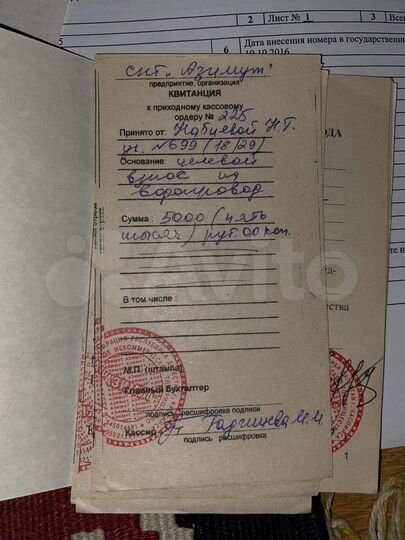 2 Лист № 1 3 Всег
5
6 Дата внесения номера в государствен
10.10.2016
СНТ "Азимут"
предприятие, организация
КВИТАНЦИЯ
к приходному кассовому
ордеру № 225
Принято от: Набиевой Н.Г.
уч. №699 (18/29)
Основание: целевой
взнос на
водопровод
Сумма: 5000 (пять
тысяч) руб 00 коп.
В том числе:
М.П. (штампа)
Главный бухгалтер
подпись расшифровка подписи
Кассир Гаджиева М.М.
подпись расшифровка
ОДА
ества
1
Avito